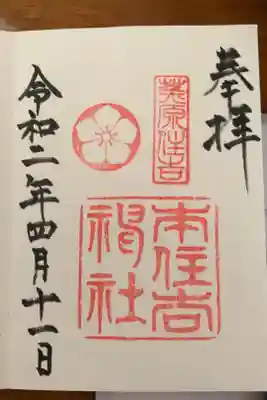 奉拝
菟原住吉
本住吉神社
令和二年四月十一日